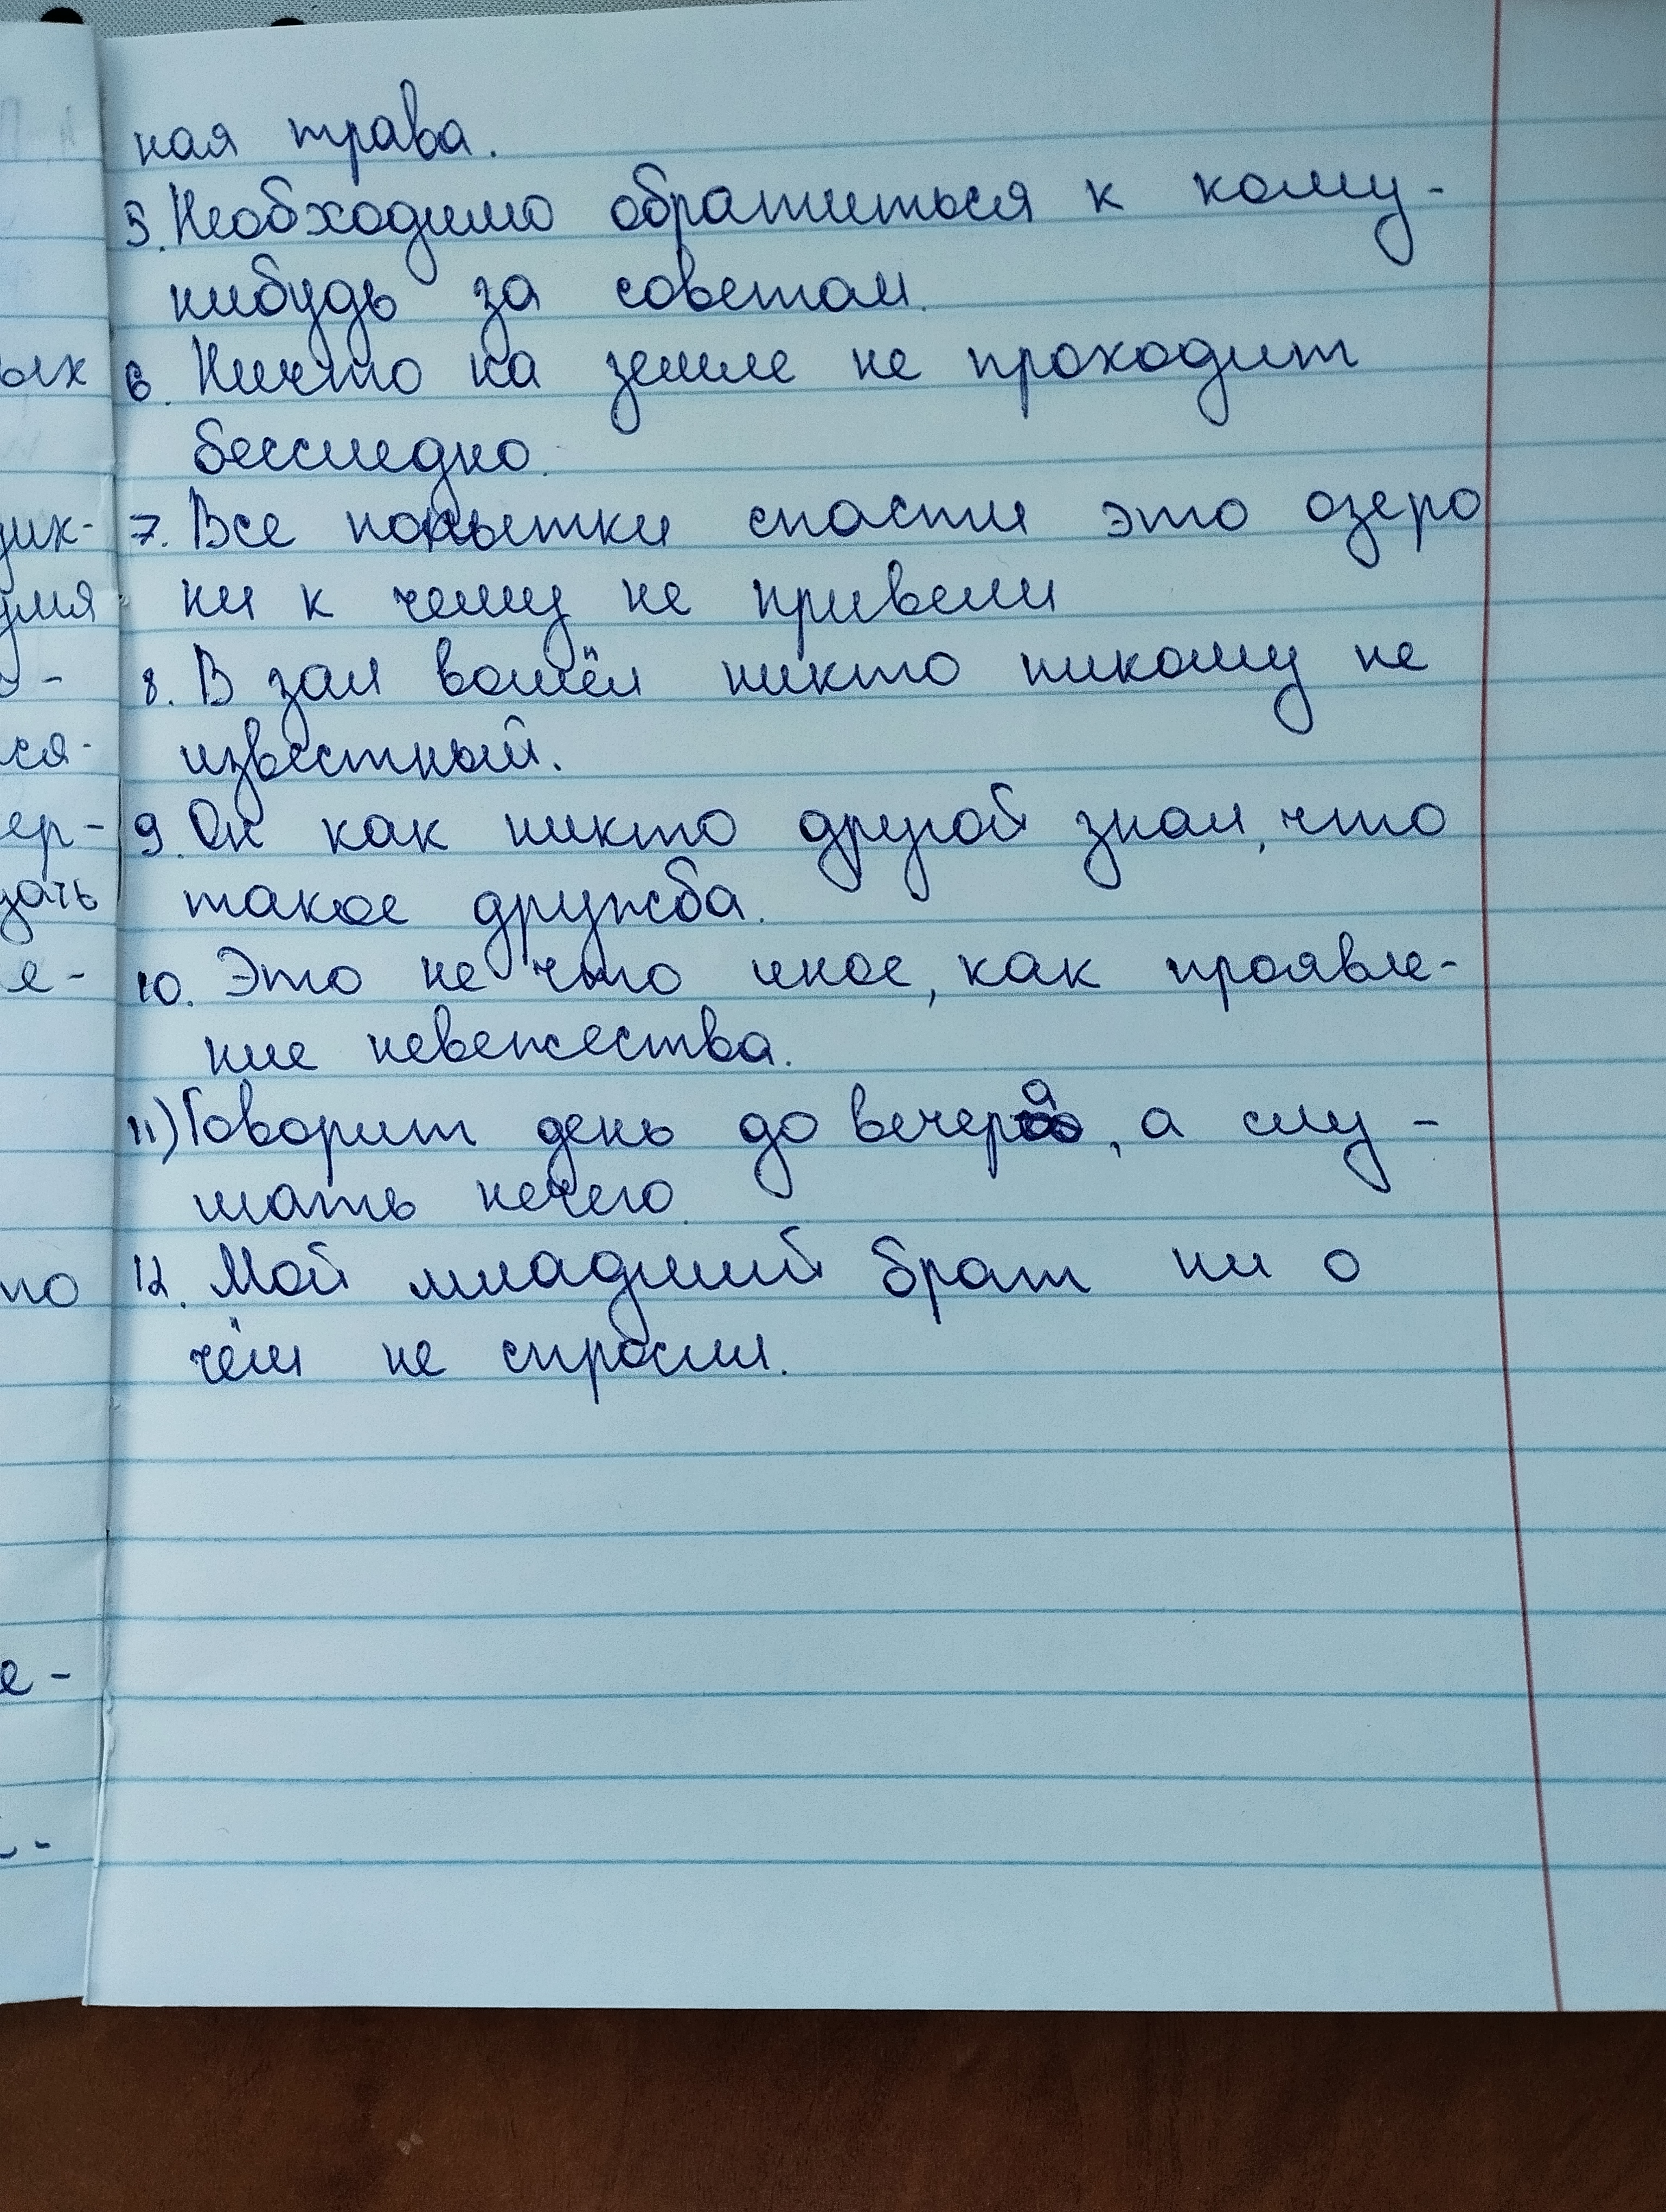 ная трава.
5. Необходимо обратиться к кому-
нибудь за советом.
6. Ничто на земле не проходит
бесследно.
7. Все попытки спасти это озеро
ни к чему не привели
8. В зал вошёл никто никому не
известный.
9. Он как никто другой знал, что
такое дружба.
10. Это не что иное, как проявле-
ние невежества.
11) Говорит день до вечера, а слу-
шать нечего.
12. Мой младший брат ни о
чём не спросил.
ых
дик-
умя
-
ся-
ер-
дать
е-
по
е-
-